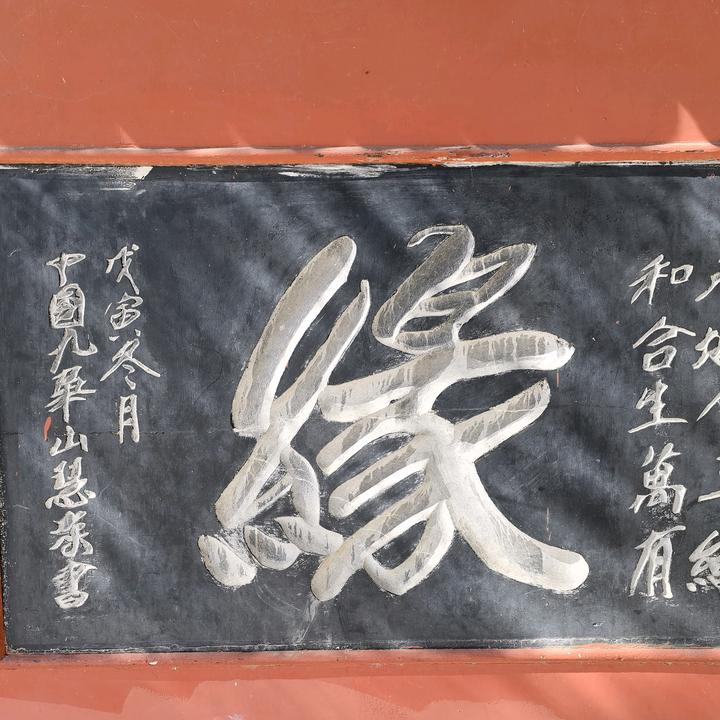 和合生萬有
緣
戊寅冬月
中國九華山慧深書